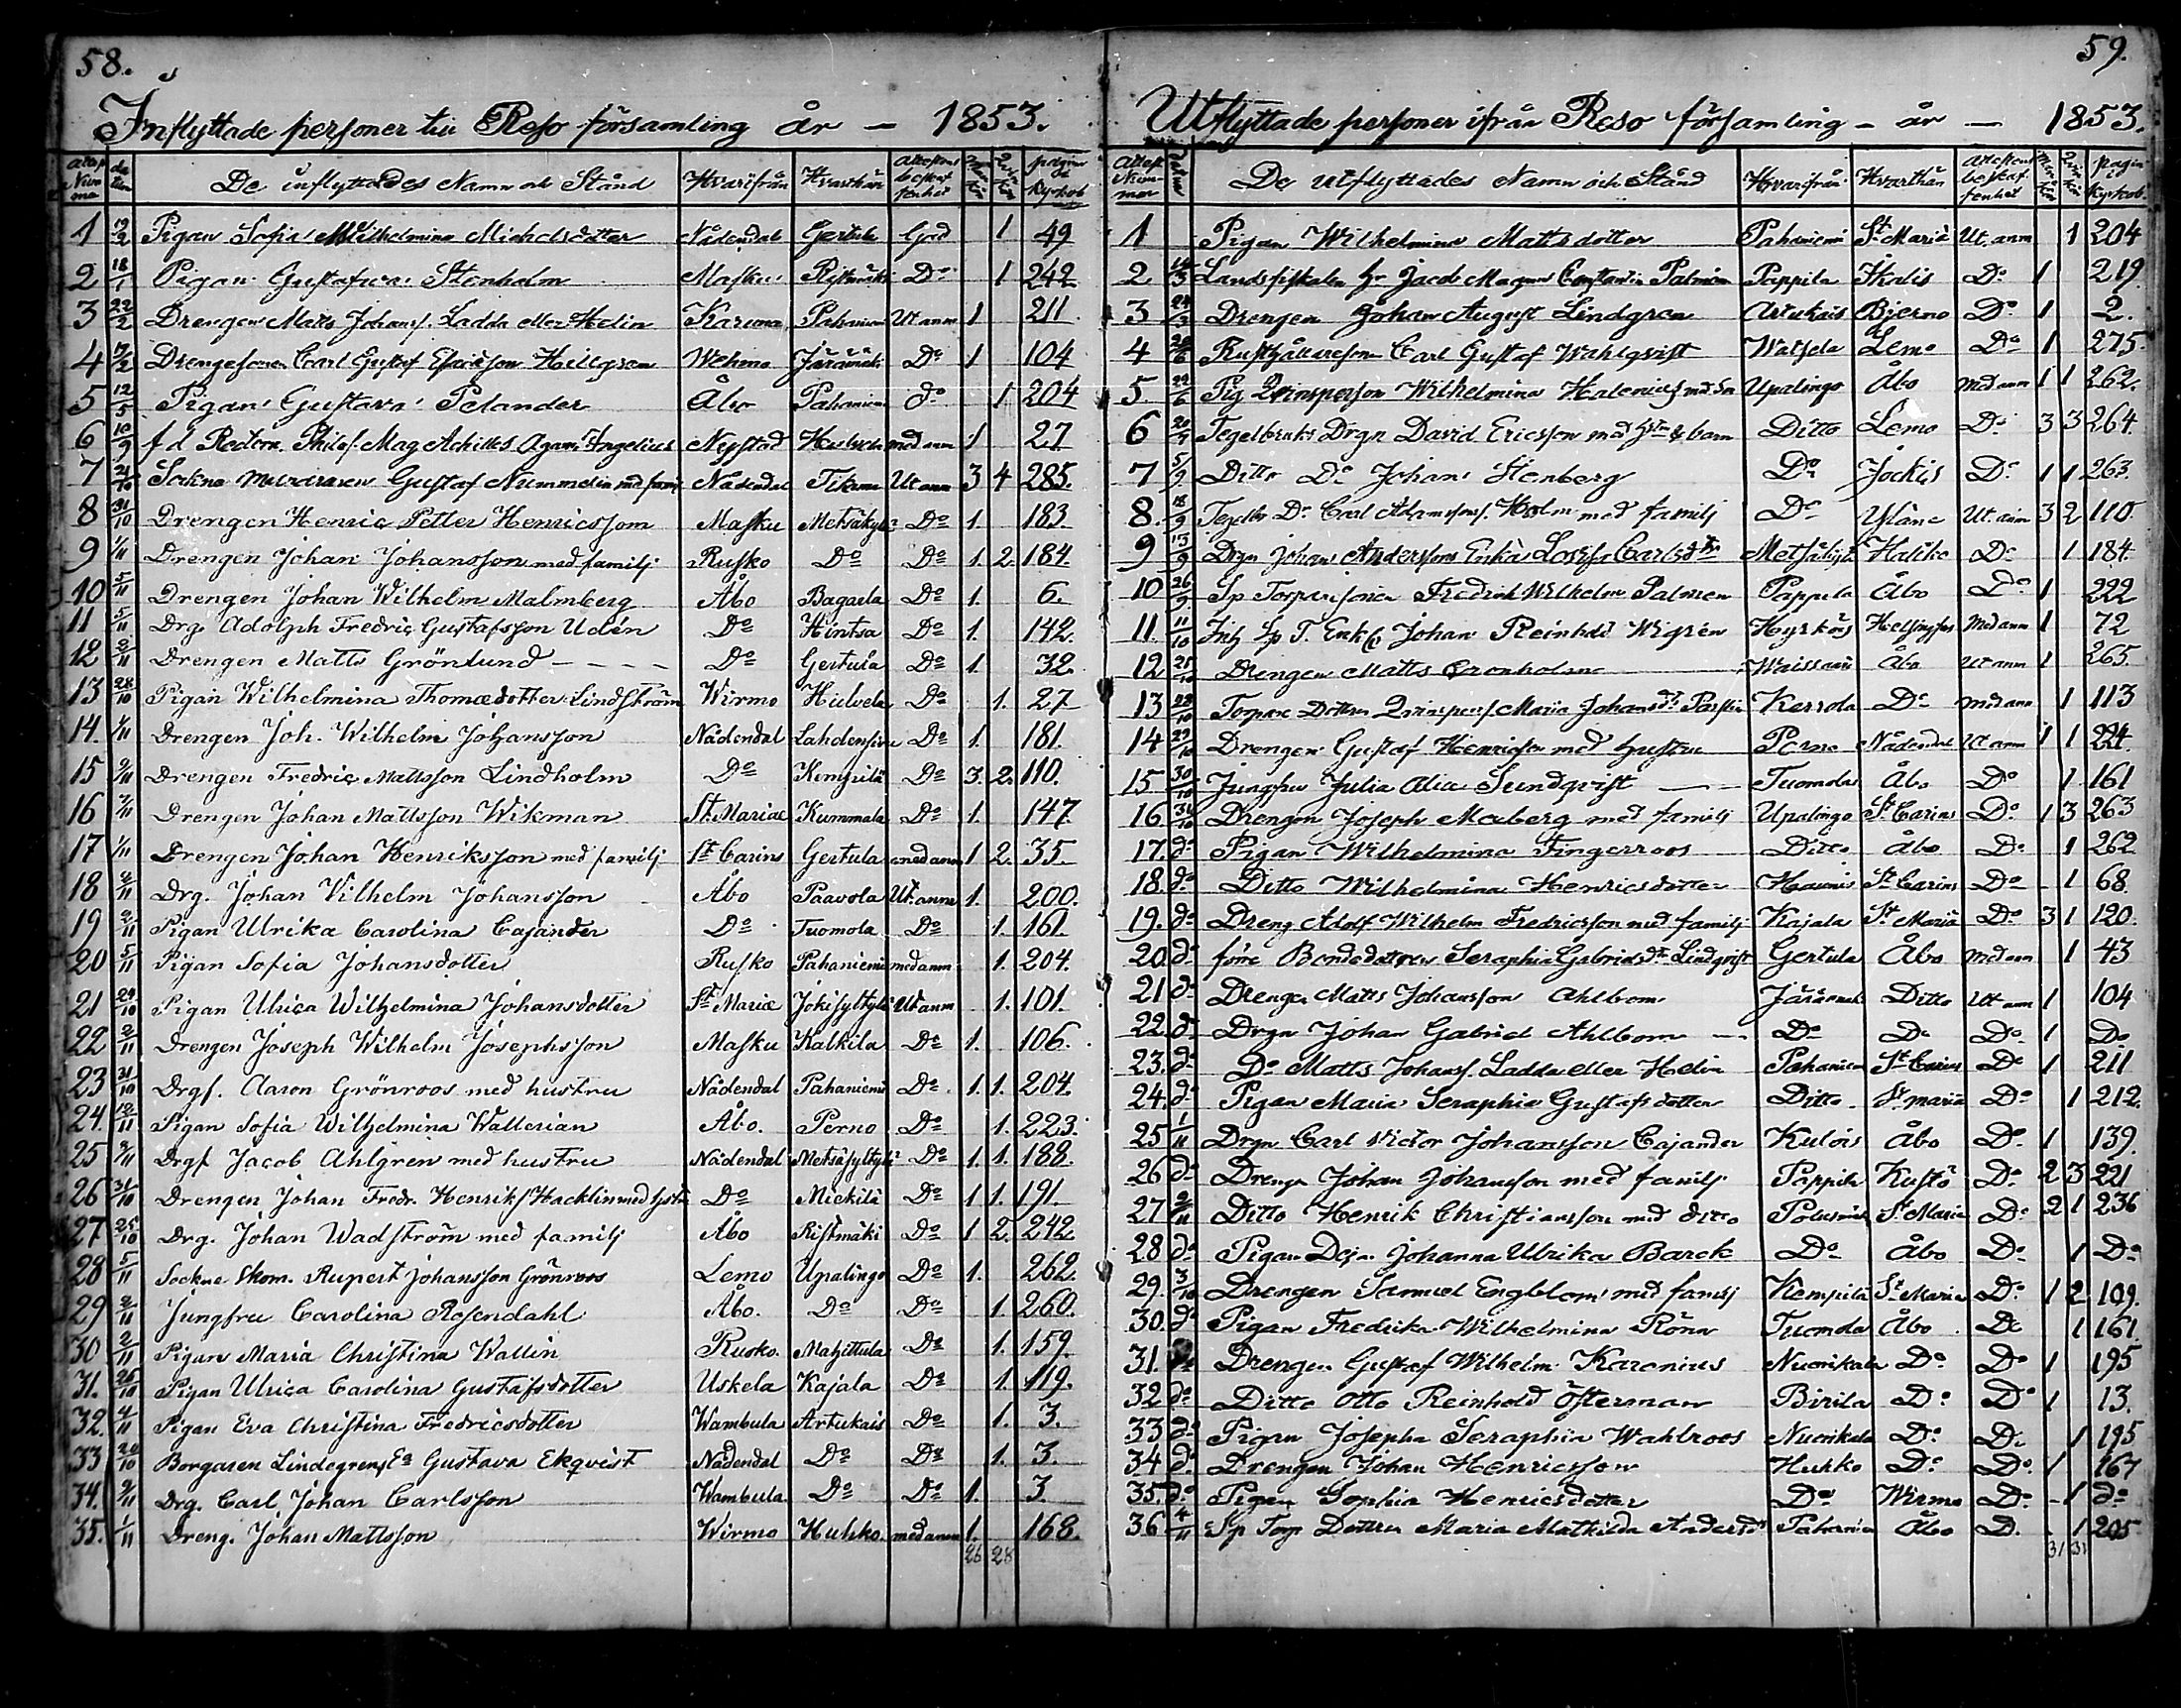 58.
Inflyttade personer till Reso församling år — 1853.
De inflyttades Namn och Stånd Hvarifrån Hvarthän
1 Pigan Sofia Wilhelmina Michelsdotter Nådendal Gertula God 1 49
2 18/1 Pigan Gustafva Stenholm Masku Ristimäki Do 1 242
3 22/2 Drengen Matts Johans. Ladda eller Helin Karuna Pahaniemi Ut anm 1 211
4 Drengesonen Carl Gustaf Hellgren Wehmo Järämäki Do 1 104
5 12/5 Pigan Gustava Pelander Åbo Pahaniemi do 1 204
6 10/9 f d Rectorn Philos. Mag Achilles Agam. Ingelius Nystad med anm 1 27
7 Sockne Gustaf Nummelin med familj Nådendal Ut anm 3 4 285.
8 31/10 Drengen Henric Petter Henricsson Masku Metsäkylä Do 1. 183.
9 1/11 Drengen Johan Johansson med familj Rusko Do Do 1. 2. 184.
10 5/11 Drengen Johan Wilhelm Malmberg Åbo Bagarla Do 1. 6.
11 5/11 Drg. Adolph Fredric Gustafsson Udén Do Hintsa Do 1. 142.
12 2/11 Drengen Matts Grönlund Do Gertula Do 1. 32.
13 28/10 Pigan Wilhelmina Thomædotter Lindström Wirmo Hulvela Do 1. 27
14. 1/11 Drengen Joh. Wilhelm Johansson Nådendal Do 1. 181.
15 9/11 Drengen Fredric Mattsson Lindholm Do Kempilä Do 3. 2. 110.
16 7/11 Drengen Johan Mattsson Wikman St. Mariae Kummala Do 1. 147.
17 1/11 Drengen Johan Henriksson med familj St Carins Gertula med anm 1 2. 35.
18 Drg. Johan Vilhelm Johansson Åbo Paavola Ut. anm 1. 200.
19 2/11 Pigan Ulrika Carolina Cajander Do Tuomola Do 1. 161.
20 5/11 Pigan Sofia Johansdotter Rusko Pahaniemi med anm 1. 204.
21 24/10 Pigan Ulrica Wilhelmina Johansdotter St Mariæ Ut anm 1. 101.
22 2/11 Drengen Joseph Wilhelm Josephsson Masku Kalkila Do 1. 106.
23 31/10 Drgs. Aaron Grönroos med hustru Nådendal Pahaniemi Do 1. 1. 204.
24. Pigan Sofia Wilhelmina Wallerian Åbo. Perno Do 1. 223.
25 9/11 Drgs. Jacob Ahlgren med hustru Nådendal Do 1. 1. 188.
26 31/10 Drengen Johan Fredr. Henriks. Hacklin med hstru Do Mickilä Do 1 1. 191.
27 25/10 Drg. Johan Wadström med familj Åbo Ristmäki Do 1 2. 242.
28 5/11 Sockne Skom. Rupert Johansson Grönroos Lemo Upalingo Do 1. 262.
29 2/11 Jungfru Carolina Rosendahl Åbo. Do Do 1. 260.
30 2/11 Pigan Maria Christina Wallin Rusko. Mahittula Do 1. 159.
31. 26/10 Pigan Ulrica Carolina Gustafsdotter Uskela Kajala Do 1. 119.
32. 4/11 Pigan Eva Christina Fredricsdotter Wambula Artukais Do 1. 3.
33 20/10 Borgaren Lindegrens Ea Gustava Ekqvist Nådendal Do Do 1. 3.
34. 9/11 Drg. Carl Johan Carlsson Wambula. Do Do 1. 3.
35. 1/11 Dreng. Johan Mattsson Wirmo Huhko. med anm 1. 168.
26 28
59.
Utflyttade personer ifrån Reso församling – år — 1853.
De utflyttades Namn och Stånd Hvarifrån Hvarthän
1 Pigan Wilhelmina Mattsdotter Pahaniemi St Mariæ Ut. anm 1 204
2 Landsfiskalen Hr Jacob Magnus Constantin Palmén Pappila Ikalis Do 1 219
3 24/3 Drengen Johan August Lindgren Artukais Bjerno Do 1 2.
4 Rusthållaresonen Carl Gustaf Wahlqvist Watsela Lemo Do 1 275.
5 22/6 Pig Qvinsperson Wilhelmina Halenius med son Upalingo Åbo med anm 1 1 262.
6 Tegelbruks Drgn David Ericsson med hstru & barn Ditto Lemo Do 3 3 264.
7 5/9 Ditto Do Johan Stenberg Do Jockis Do 1 1 263
8. 18/9 Tegelbr Do Carl Adamssons. Holm med familj Do Yläne Ut. anm 3 2 110.
9 13/9 Drgn Johan Anderssons Enka Lovisa Carlsdtr Haliko Do 1 184.
10 26/9 Sp Torparesonen Fredrik Wilhelm Palmen Pappila Åbo Do 1 222
11. 11/10 Johan Reinhold Wigrén Helsingfors med anm 1 72
12 Drengen Matts Cronholm Åbo Ut anm 1 265.
13 Torpare Dottern Qvinspers. Maria Johansdr Kerrola Do med anm 1 113
14 29/10 Drengen Gustaf Henricsson med hustru Perno Nådendal Ut anm 1 1 224.
15 30/10 Jungfru Julia Alia Sundqvist Tuomola Åbo Do 1 161
16 31/10 Drengen Joseph Moberg med familj Upalingo St Carins Do 1 3 263
17. do Pigan Wilhelmina Fingerroos Ditto Åbo Do 1 262
18. do Ditto Wilhelmina Henricsdotter Haunis St Carins Do 1 68.
19. do Dreng Adolf Wilhelm Fredricsson med familj Kajala St Mariä Do 3 1 120.
20. do förre Bondedottren Seraphia Gabrielsdtr Lindqvist Gertula Åbo med anm 1 43
21 do Drengen Matts Johansson Ahlbom Järämäki Ditto Ut anm 1 104
22. do Drgn Johan Gabriel Ahlbom Do Do Do 1 Do
23. do Do Matts Johans. Ladda eller Helin Pahaniemi St Carins Do 1 211
24. do Pigan Maria Seraphia Gustafsdotter Ditto St maria Do 1 212.
25 1/11 Drgn Carl Victor Johansson Cajander Kulois Åbo Do 1 139.
26 do Drengen Johan Johansson med familj Pappila Kustö Do 2 3 221
27 2/11 Ditto Henrik Christiansson med ditto St Maria Do 2 1 236
28 do Pigan Dejan Johanna Ulrika Barck Do Åbo Do 1 Do
29. 3/10 Drengen Samuel Engblom med familj Kempilä St Maria Do 1 2 109.
30. do Pigan Fredrika Wilhelmina Röna Tuomola Åbo Do 1 161
31. Drengen Gustaf Wilhelm Karenius Nuorikala Do Do 1 195
32 do Ditto Otto Reinhold Österman Birila Do Do 1 13.
33 do Pigan Josepha Seraphia Wahlroos Nuorikala Do Do 1 195
34 do Drengen Johan Henricsson Huhko Do Do 1 167
35. do Pigan Sophia Henricsdotter Do Wirmo Do 1 do
36 4/11 Sp Torp Dottern Maria Mathilda Andersdr Pahaniemi Åbo D. 1 205
31 31